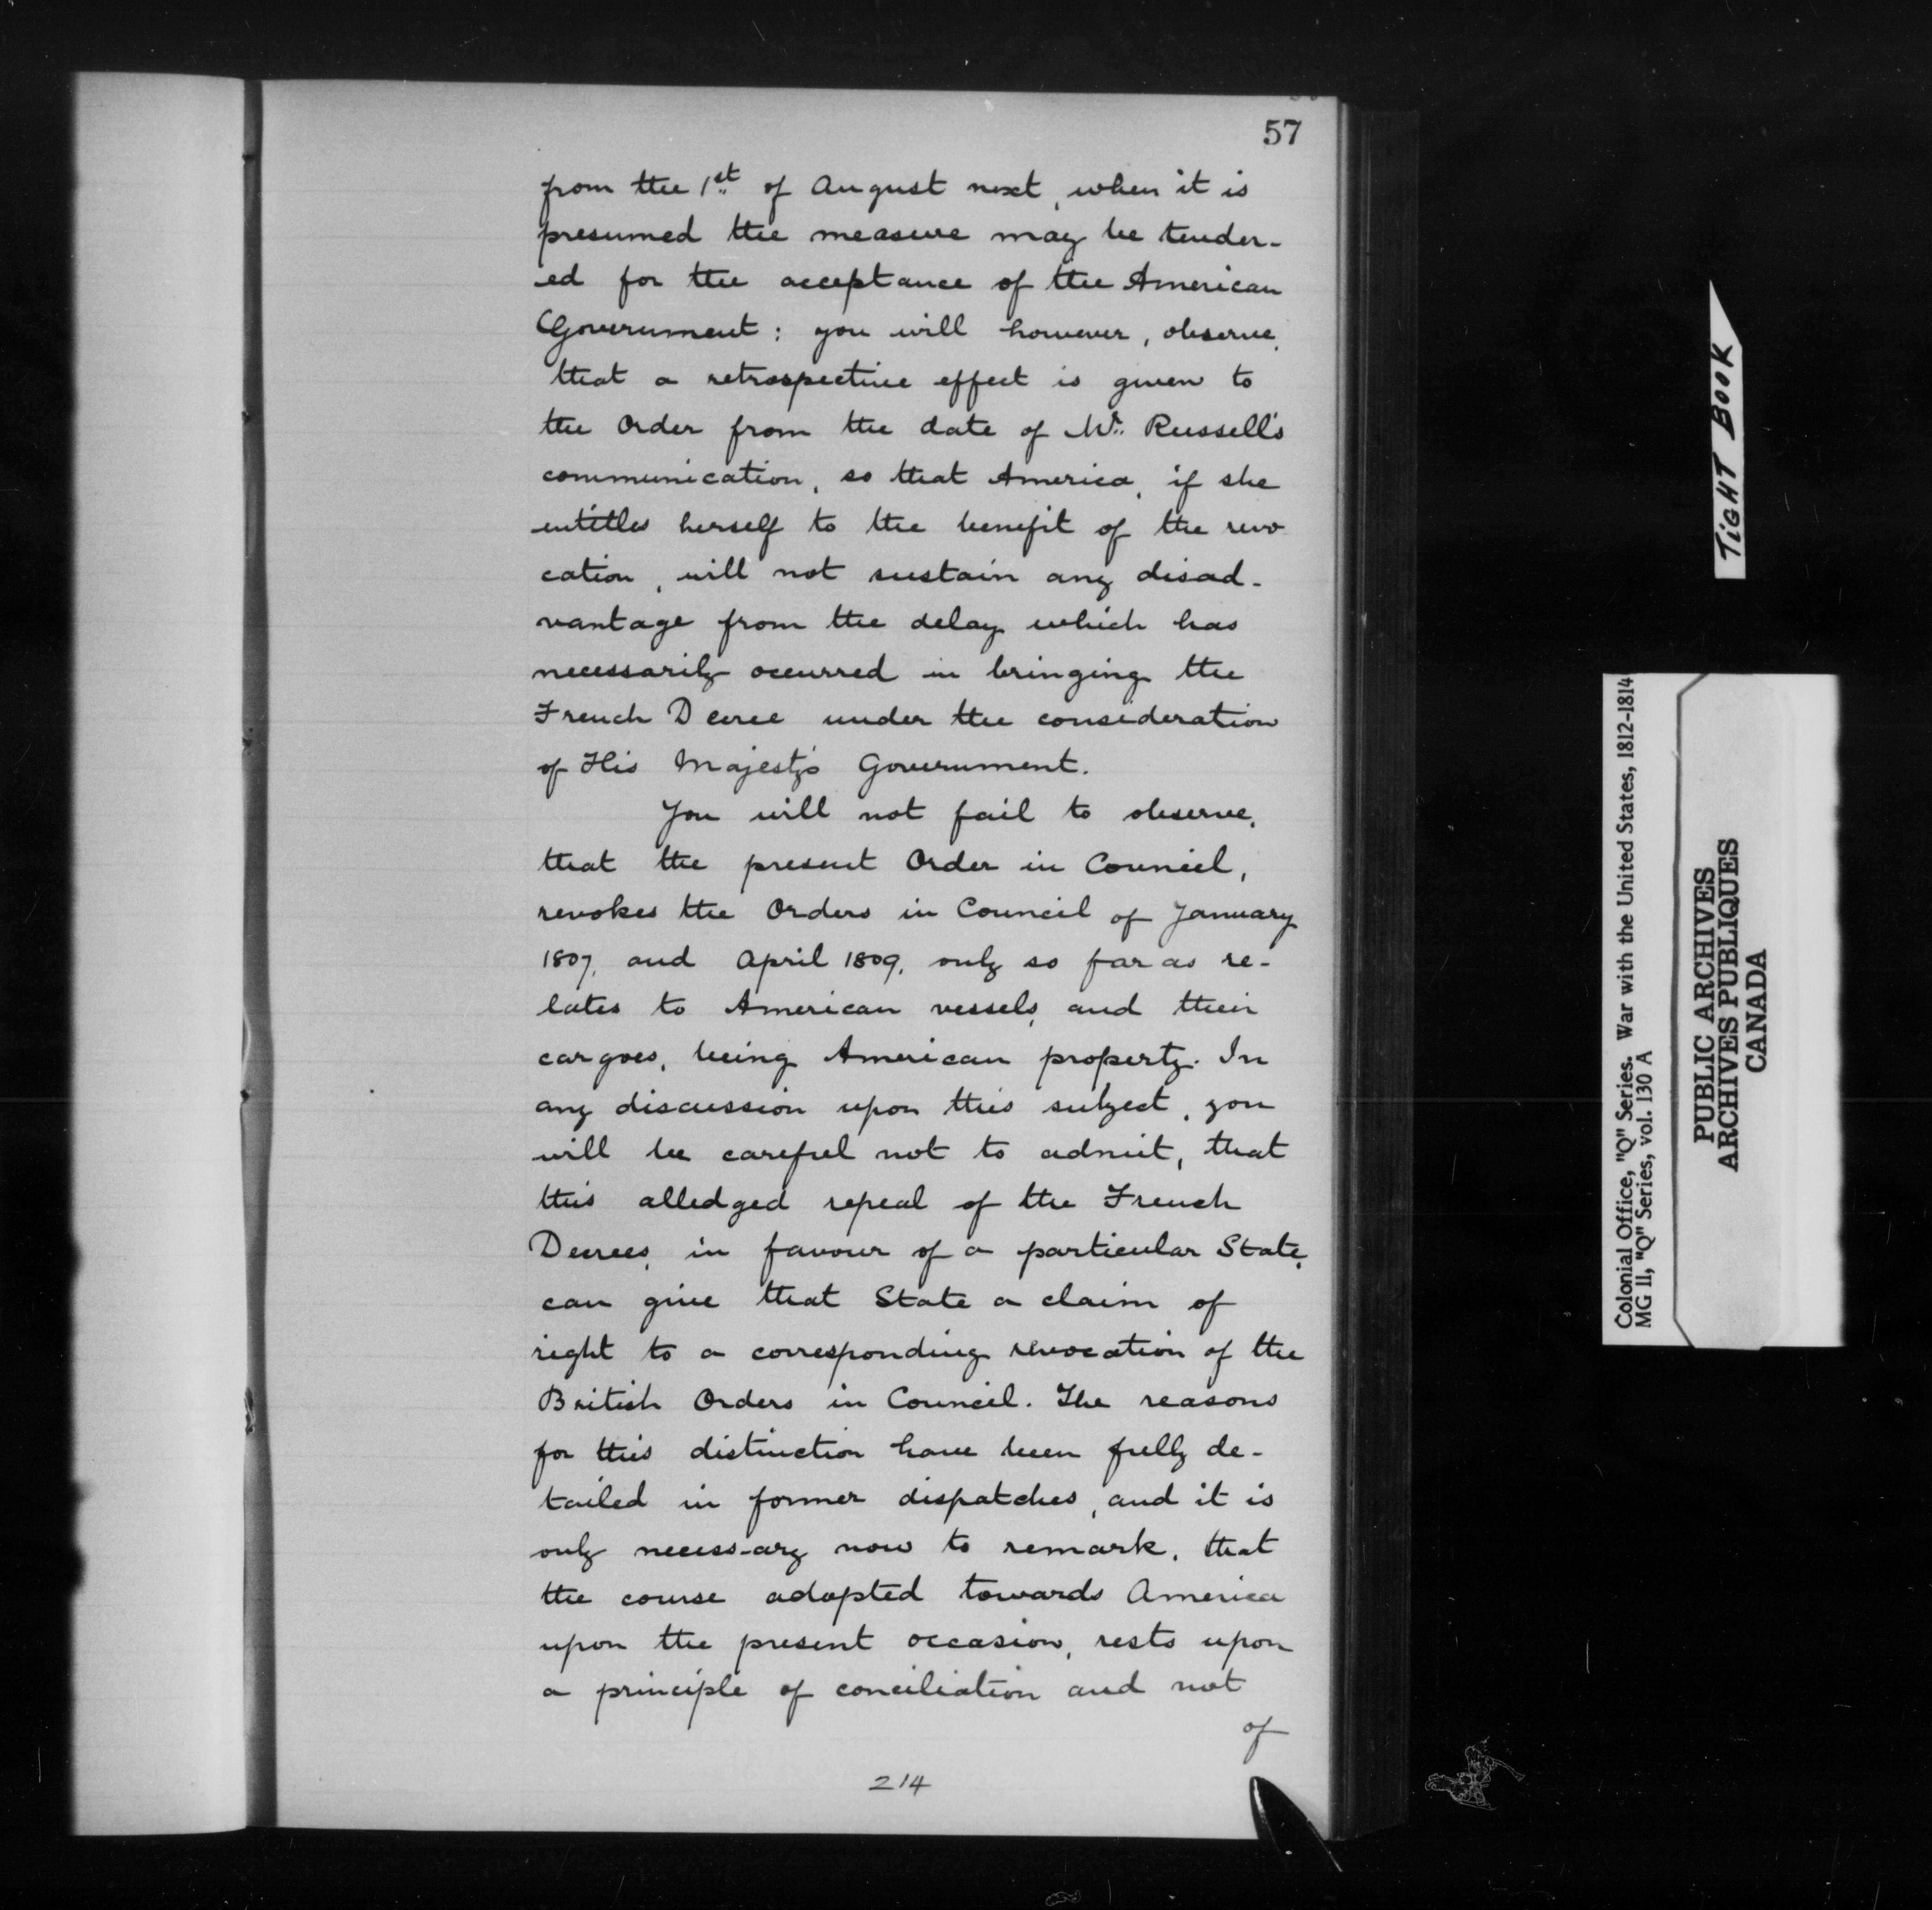 57
from the 1st of August next, when it is
presumed the measure may be tender-
ed for the acceptance of the American
Government: you will however, observe,
that a retrospective effect is given to
the Order from the date of Mr. Russell's
communication, so that America, if she
entitles herself to the benefit of the revo
cation, will not sustain any disad-
vantage from the delay which has
necessarily occurred in bringing the
French Decree under the consideration
of His Majesty's Government.
You will not fail to observe,
that the present Order in Council,
revokes the Orders in Council of January
1807, and April 1809, only so far as re-
lates to American vessels, and their
cargoes, being American property. In
any discussion upon this subject, you
will be careful not to admit, that
this alledged repeal of the French
Decrees, in favour of a particular State,
can give that State a claim of
right to a corresponding revocation of the
British Orders in Council. The reasons
for this distinction have been fully de-
tailed in former dispatches, and it is
only necess-ary now to remark, that
the course adopted towards America
upon the present occasion, rests upon
a principle of conciliation and not
of
214
TIGHT BOOK
Colonial Office, "Q" Series. War with the United States, 1812-1814
MG 11, "Q" Series, vol. 130 A
PUBLIC ARCHIVES
ARCHIVES PUBLIQUES
CANADA